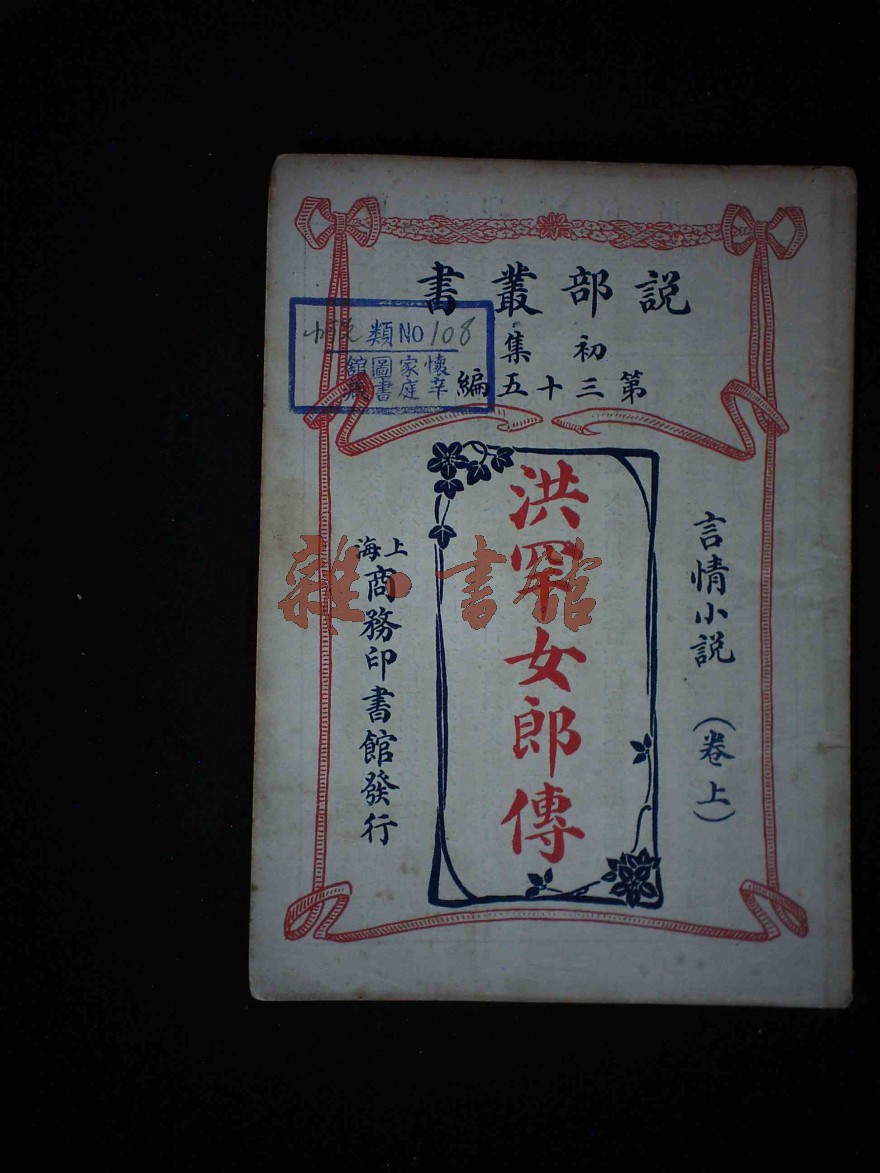 説部叢書
初集
第三十五編
小說類NO 108
懷辛家庭圖書館藏
言情小説（卷上）
洪罕女郎傳
上海
商務印書館發行
雜·書館